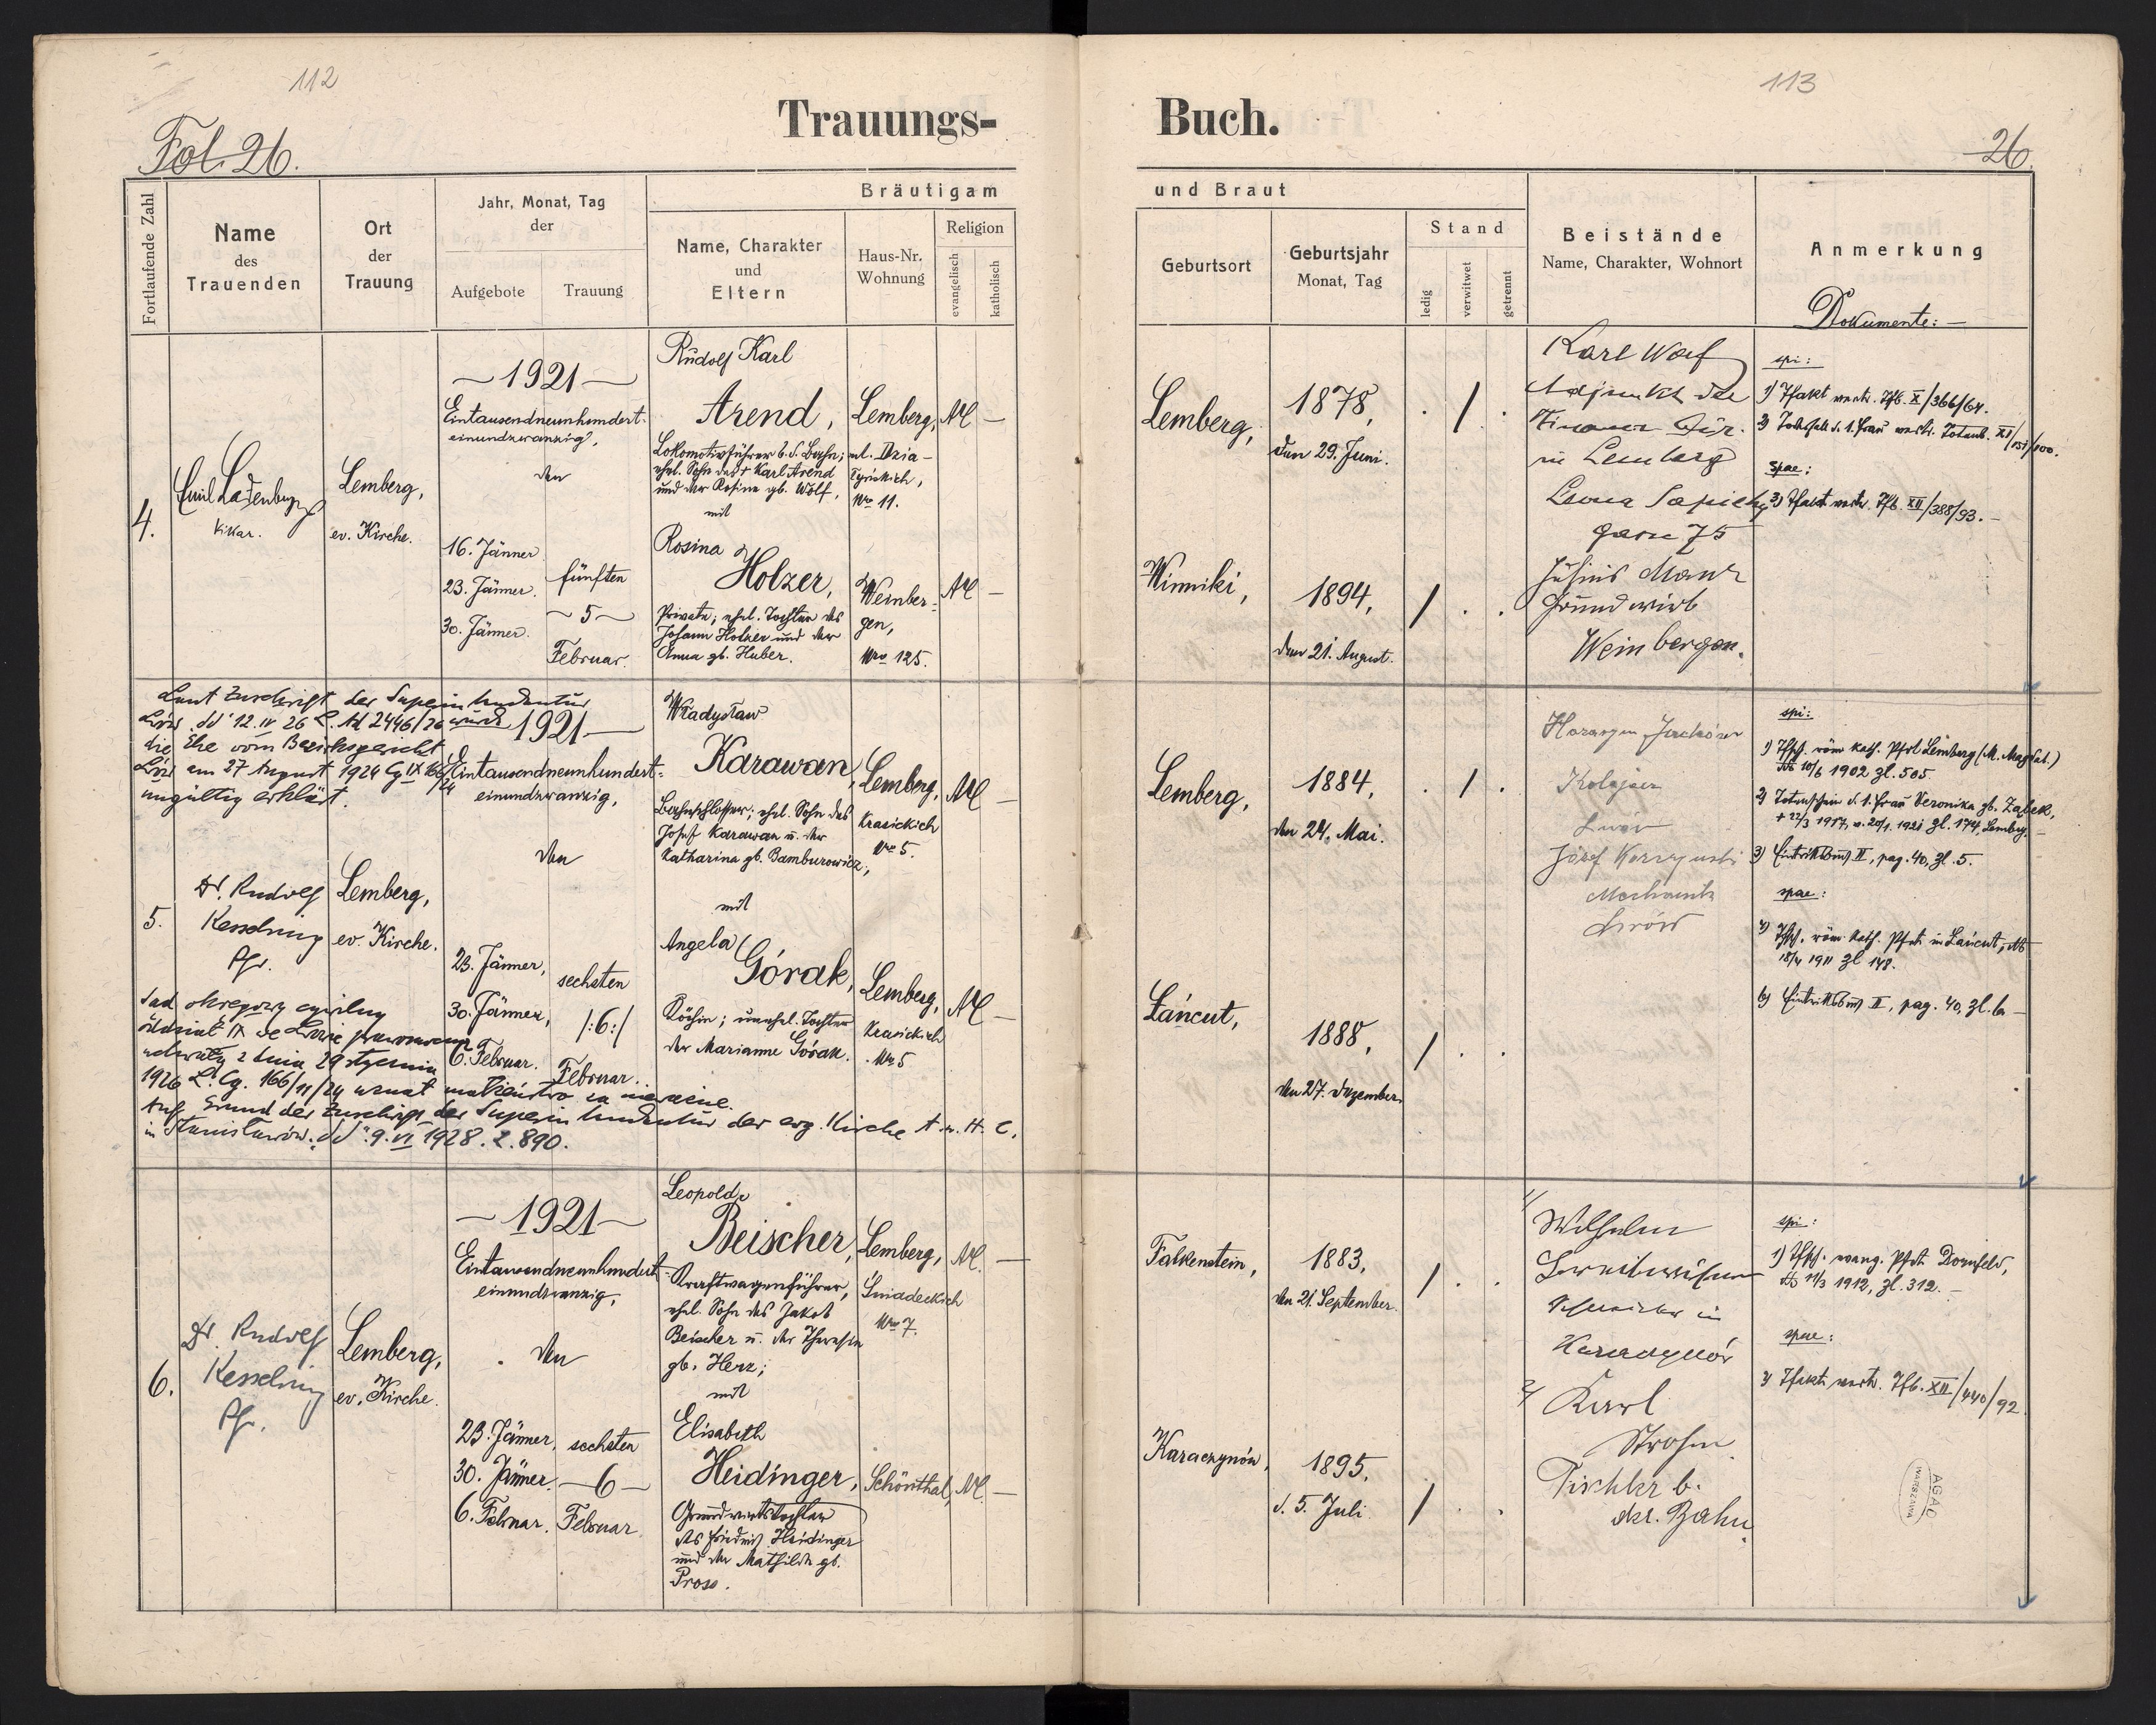 112
Trauungs-
Fol. 26.
Fortlaufende Zahl
Name
des
Trauenden
Ort
der
Trauung
Jahr, Monat, Tag
der
Aufgebote
Trauung
Bräutigam
Name, Charakter
und
Eltern
Haus-Nr.
Wohnung
Religion
evangelisch
katholisch
4.
Emil Ladenberger
Vikar.
Lemberg,
ev. Kirche.
1921
Eintausendneunhundert-
einundzwanzig,
den
16. Jänner
23. Jänner.
30. Jänner.
fünften
5
Februar.
Rudolf Karl
Arend,
Lokomotivführer b. d. Bahn;
ehel. Sohn des † Karl Arend
und der Rosina gb. Wolf,
mit
Lemberg,
ul. Dzia-
łyńskich,
Nro 11.
AC —
Rosina
Holzer,
Private; ehel. Tochter des
Johann Holzer und der
Anna gb. Huber.
Weinber-
gen,
Nro 125.
AC —
Laut Zuschrift der Superintendentur
Lwów. dd 12. IV 26 L. Ad 2446/26 wurde
die Ehe vom Bezirksgericht
Lwów am 27 August 1924 Cg IX 166/24
ungültig erklärt.
5.
Dr. Rudolf
Kesselring
Pfr.
Lemberg,
ev. Kirche.
1921
Eintausendneunhundert-
einundzwanzig,
den
23. Jänner,
30. Jänner,
6. Februar.
sechsten
/:6:/
Februar.
Władysław
Karawan,
Bahnschlosser; ehel. Sohn des
Josef Karawan u. der
Katharina gb. Bamburowicz;
mit
Lemberg,
Krasickich
Nro 5.
AC —
Angela
Górak,
Köchin; unehel. Tochter
der Marianne Górak.
Lemberg,
Krasickich
Nro 5
AC —
Sąd okręgowy cywilny
oddział IX we Lwowie prawomocną
uchwałą z dnia 29 stycznia
1926 L. Cg. 166/11/24 uznał małżeństwo za nieważne.
Auf Grund der Zuschrift der Superintendentur der evg. Kirche A. u. H. C.
in Stanisławów. dd 9. VI 1928. Z. 890.
6.
Dr. Rudolf
Kesselring
Pfr.
Lemberg,
ev. Kirche.
1921
Eintausendneunhundert-
einundzwanzig,
den
23. Jänner,
30. Jänner.
6. Februar.
sechsten
6
Februar.
Leopold
Beischer,
Kraftwagenführer,
ehel. Sohn des Jakob
Beischer u. der Theresia
gb. Herz;
mit
Lemberg,
Śniadeckich
Nro 7.
AC. —
Elisabeth
Heidinger,
Grundwirtstochter
des Friedrich Heidinger
und der Mathilde gb.
Pross.
Schönthal,
AC. —
113
Buch.
26.
und Braut
Geburtsort
Geburtsjahr
Monat, Tag
Stand
ledig
verwitwet
getrennt
Beistände
Name, Charakter, Wohnort
Anmerkung
Dokumente: —
Lemberg,
1878,
den 29. Juni.
Karl Wolf
Adjunkt der
Finanz Dir.
in Lemberg
Leona Sapiehy
gasse 75
spi:
Winniki,
1894,
den 21. August.
Julius Manz
Grundwirt
Weinbergen.
spae:
Lemberg,
1884,
den 24. Mai.
Kolejarz
Lwów
Józef
Mechanik
Lwów
spi:
1) Tfsch. röm. kath. Pfrt Lemberg (M. Magdal.)
dto 10/6 1902 Zl. 505.
2) Totenschein d. 1. Frau Veronika gb. Ząbek,
† 22/3 1917, v. 20/1. 1921 Zl. 174, Lemberg. —
3) Eintrittsbuch II, pag. 40, Zl. 5.
spae:
Łańcut,
1888,
den 27. Dezember.
4) Tfsch. röm. kath. Pfrt. in Łańcut, dto
18/4 1911 Zl 148.
Eintrittsbuch II, pag. 40, Zl. 6 —
Falkenstein,
1883,
den 21. September.
1/
Wilhelm
in
2/ Karl
Strohm
Tischler b.
der Bahn.
spi:
1) Tfsch. evang. Pfrt. Dornfeld,
dto 11/3 1912, Zl. 312. —
spae:
2) Tfakt vertr. Tfb. XII/440/92.
Karaczynów,
1895,
d. 5. Juli.
AGAD
WARSZAWA